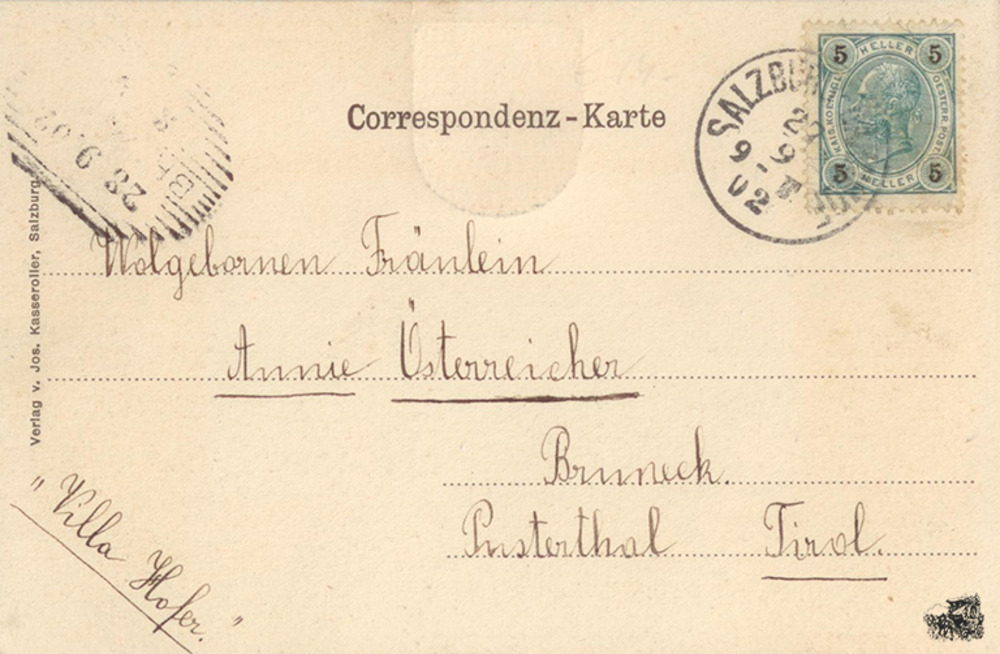 Correspondenz-Karte
5 HELLER 5
KAIS. KOENIGL. OESTERR. POST.
5 HELLER 5
SALZBURG
9 9 02
28 9 02
Verlag v. Jos. Kasseroller, Salzburg.
Wolgebornen Fräulein
Annie Österreicher
Bruneck.
Pusterthal Tirol.
"Villa Hofer."